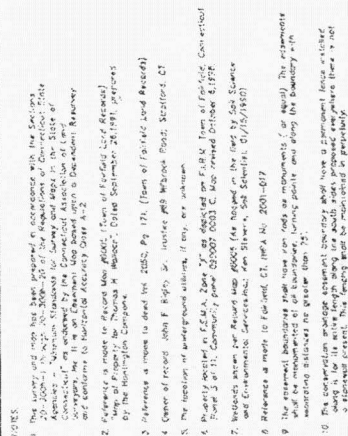 NOTES:
1. This survey and map has been prepared in accordance with the Sections
20-300b-1 thru 20-300b-20 of the Regulations of Connecticut State
Agencies - "Minimum Standards for Surveys and Maps in the State of
Connecticut" as endorsed by the Connecticut Association of Land
Surveyors, Inc. It is an Easement Map based upon a Dependent Resurvey
and conforms to Horizontal Accuracy Class A-2.
2. Reference is made to Record Map (Town of Fairfield Land Records)
"Map of Property for Thurman H Dated September 26, 1991, prepared
by The Huntington Company.
3. Reference is made to deed Vol. Pg. 171. (Town of Fairfield Land Records)
4. Owner of record: John F Sr. trustee Road, Stratford, CT
5. The location of underground utilities, if any, are unknown
6. Property located in F.E.M.A. Zone "X" as depicted on F.I.R.M. Town of Fairfield, Connecticut
Panel 3 of 11. Community panel 090007 0003 C. Map revised October 6, 1978.
7. Wetlands shown per Record Map (As flagged in the field by Soil Science
and Environmental Services, Inc. Ken Stevens, Soil Scientist,
8. Reference is made to Fairfield, CT. IWPA No. 2001-017
9. The easement boundaries shall have iron rods as monuments (or equal). The easements
shall be monumented at all boundaries, turning points and along the boundary with
according distance no greater than 75'.
10. The conservation easement boundary shall have a permanent fence installed
along it for its entire length along the south sides proposed everywhere there is not
a stonewall present. This fencing must be maintained in perpetuity.